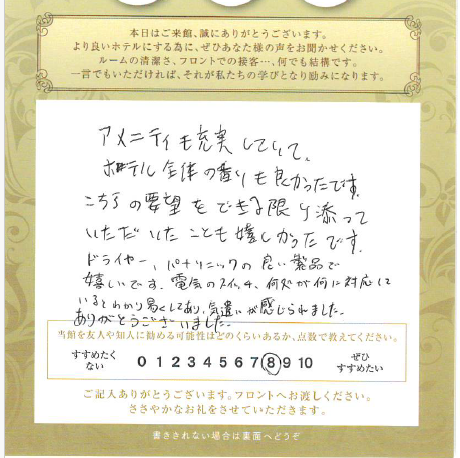 本日はご来館、誠にありがとうございます。
より良いホテルにする為に、ぜひあなた様の声をお聞かせください。
ルームの清潔さ、フロントでの接客…、何でも結構です。
一言でもいただければ、それが私たちの学びとなり励みになります。
アメニティも充実していて、
ホテル全体の香りも良かったです。
こちらの要望をできる限り添って
いただいたことも嬉しかったです。
ドライヤー、パナソニックの良い製品で
嬉しいです。電気のスイッチ、何処が何に対応して
いるとわかり易くしてあり、気遣いが感じられました。
ありがとうございました。
当館を友人や知人に勧める可能性はどのくらいあるか、点数で教えてください。
すすめたくない 0 1 2 3 4 5 6 7 8 9 10 ぜひすすめたい
ご記入ありがとうございます。フロントへお渡しください。
ささやかなお礼をさせていただきます。
書ききれない場合は裏面へどうぞ